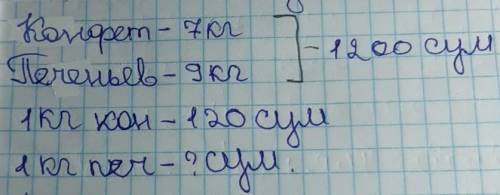 Конфет - 7кг
Печеньев - 9кг
- 1200 сум
1кг кон - 120 сум
1кг печ - ? сум.